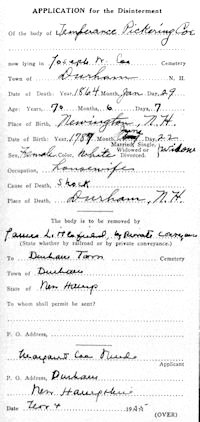 APPLICATION for the Disinterment
Of the body of Temperance Pickering Coe
now lying in Joseph W. Coe Cemetery
Town of Durham N. H.
Date of Death: Year, 1864 Month, Jan Day, 29
Age: Years, 74 Months, 6 Days, 7
Place of Birth, Newington, N.H.
Date of Birth: Year, 1789 Month, Day, 22
Sex, Female Color, White Married, Single, Widowed or Divorced. Widow
Occupation, Housewife
Cause of Death, Shock
Place of Death, Durham, N.H.
The body is to be removed by
James L. by Private Conveyance
(State whether by railroad or by private conveyance.)
To Durham Town Cemetery
Town of Durham
State of New Hamp
To whom shall permit be sent?
P. O. Address,
Margaret Coe Applicant
P. O. Address, Durham
New Hampshire
Date Nov 4 19
(OVER)